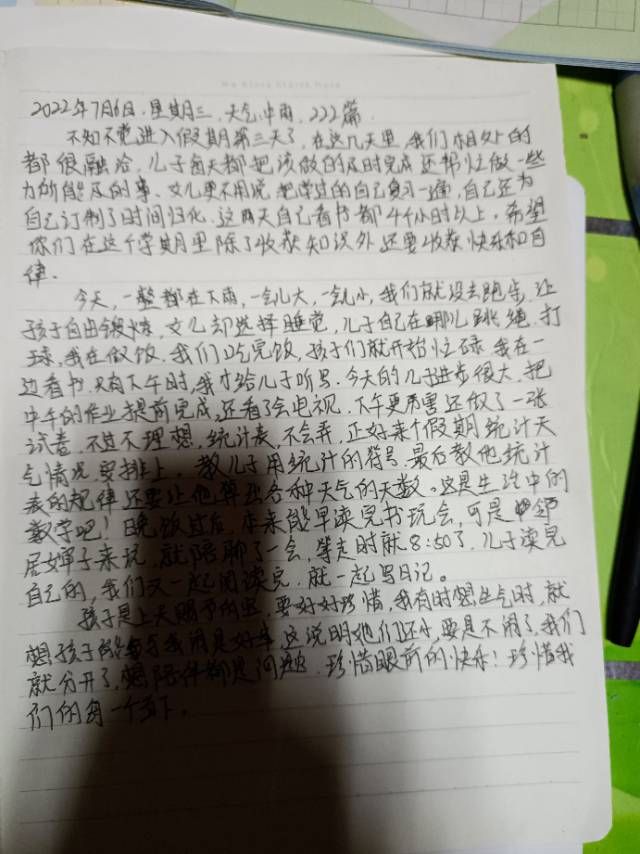 2022年7月6日.星期三.天气:中雨.222篇.
不知不觉进入假期第三天了,在这几天里,我们相处的
都很融洽.儿子每天都把该做的及时完成还帮忙做一些
力所能及的事.女儿更不用说,把学过的自己复习一遍,自己还为
自己订制了时间归化.这两天自己看书都4个小时以上.希望
你们在这个学期里除了收获知识外还要收获快乐和自
律.
今天,一整都在下雨,一会儿大,一会儿小,我们就没去跑步.让
孩子自由锻炼,女儿却选择睡觉,儿子自己在哪儿跳绳.打
球,我在做饭.我们吃完饭,孩子们就开始忙碌.我在一
边看书.只有下午时,我才给儿子听写.今天的儿子进步很大.把
中午的作业提前完成,还看了会电视.下午更厉害还做了一张
试卷.不过不理想.统计表,不会弄.正好来个假期统计天
气情况.安排上.教儿子用统计的符号.最后教他统计
表的规律还要让他算出各种天气的天数.这是生活中的
数学吧!晚饭过后,本来能早读完书玩会,可是邻
居婶子来玩.就陪聊了一会,等走时就8:50了.儿子读完
自己的,我们又一起阅读完.就一起写日记。
孩子是上天赐予的宝,要好好珍惜,我有时想生气时,就
想孩子能每与我闹是好事,这说明她们还小,要是不闹了,我们
就分开了,想陪伴都是问题.珍惜眼前的快乐!珍惜我
们的每一个当下.